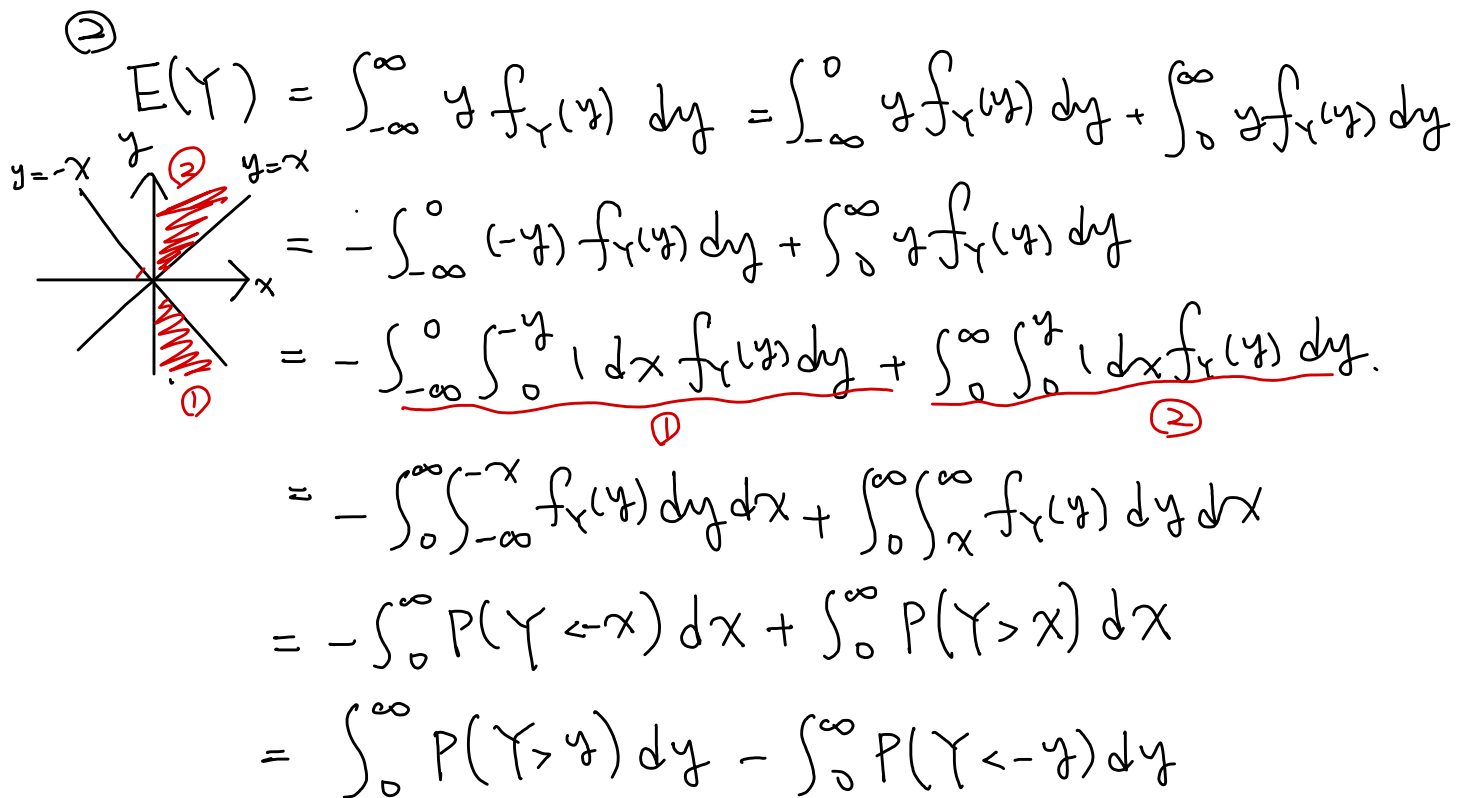 ②
E(Y) = ∫_{-∞}^{∞} y f_Y(y) dy = ∫_{-∞}^{0} y f_Y(y) dy + ∫_{0}^{∞} y f_Y(y) dy
y=-x y ② y=x
= -∫_{-∞}^{0} (-y) f_Y(y) dy + ∫_{0}^{∞} y f_Y(y) dy
x
= -∫_{-∞}^{0} ∫_{0}^{-y} 1 dx f_Y(y) dy + ∫_{0}^{∞} ∫_{0}^{y} 1 dx f_Y(y) dy.
① ① ②
= -∫_{0}^{∞} ∫_{-∞}^{-x} f_Y(y) dy dx + ∫_{0}^{∞} ∫_{x}^{∞} f_Y(y) dy dx
= -∫_{0}^{∞} P(Y < -x) dx + ∫_{0}^{∞} P(Y > x) dx
= ∫_{0}^{∞} P(Y > y) dy - ∫_{0}^{∞} P(Y < -y) dy